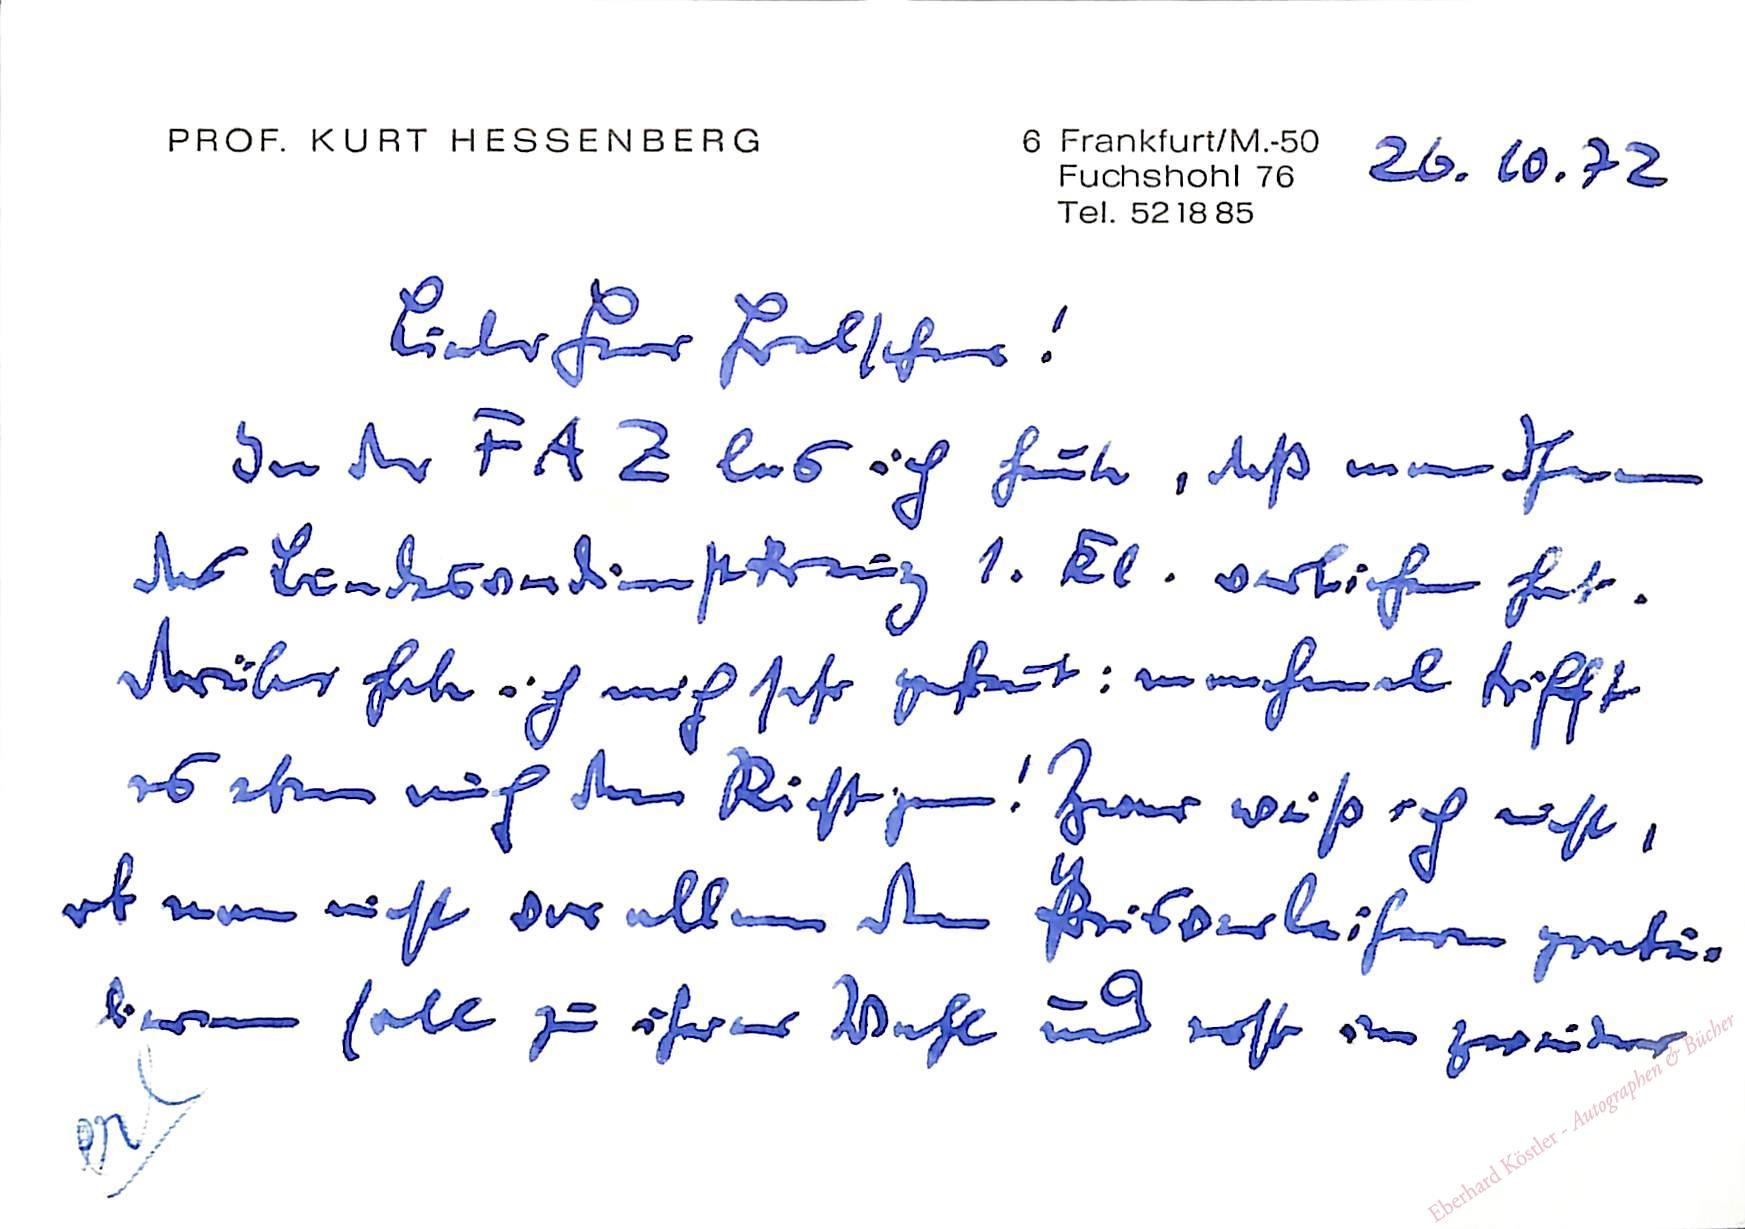 PROF. KURT HESSENBERG
6 Frankfurt/M.-50 26.10.72
Fuchshohl 76
Tel. 52 18 85
Lieber Herr !
In der FAZ las ich heute, daß man Ihnen
das Bundesverdienstkreuz 1. Kl. verliehen hat.
Darüber habe ich mich sehr gefreut: manchmal trifft
es eben auch den Richtigen! Zwar weiß ich nicht,
ob man nicht vor allem den Preisverleihern gratu-
lieren soll zu ihrer Wahl und erst in zweiter
Eberhard Köstler - Autographen & Bücher